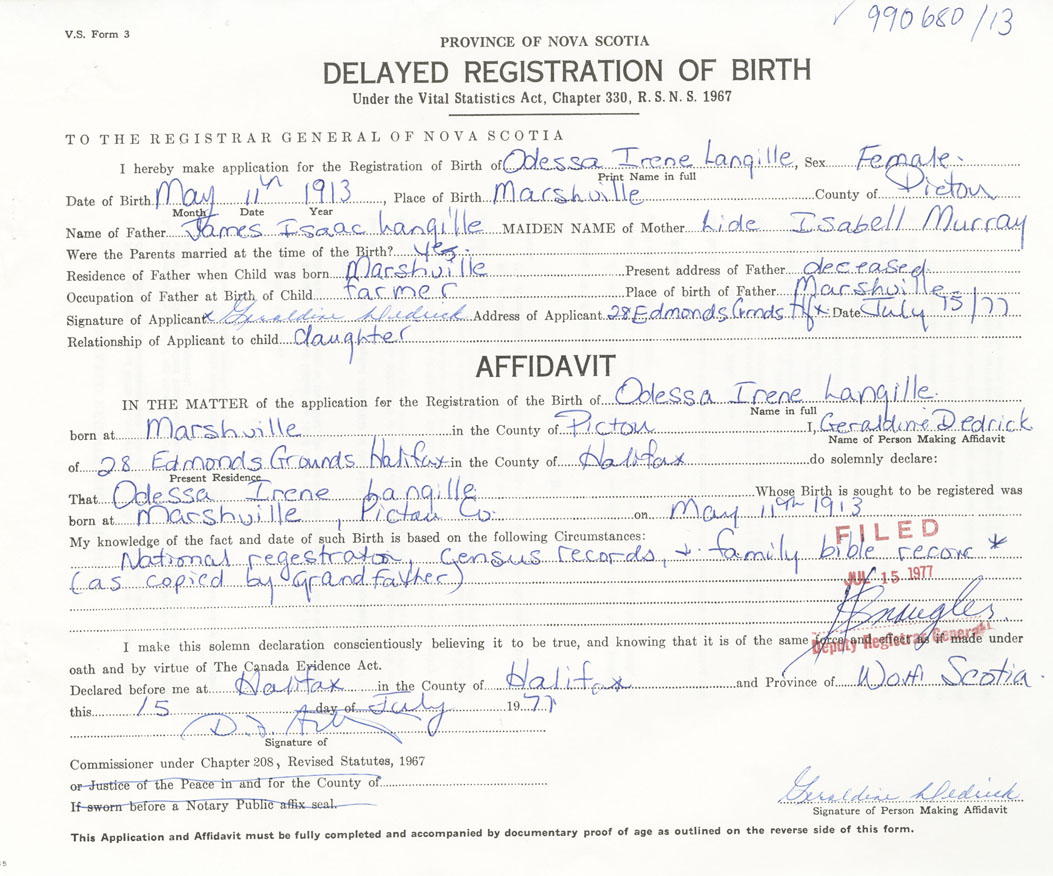 V.S. Form 3
✓ 990680/13
PROVINCE OF NOVA SCOTIA
DELAYED REGISTRATION OF BIRTH
Under the Vital Statistics Act, Chapter 330, R. S. N. S. 1967
TO THE REGISTRAR GENERAL OF NOVA SCOTIA
I hereby make application for the Registration of Birth of Odessa Irene Langille, Sex Female.
Print Name in full
Date of Birth May 11th 1913, Place of Birth Marshville County of Pictou
Month Date Year
Name of Father James Isaac Langille MAIDEN NAME of Mother Lide Isabell Murray
Were the Parents married at the time of the Birth? yes.
Residence of Father when Child was born Marshville Present address of Father deceased.
Occupation of Father at Birth of Child farmer Place of birth of Father Marshville
Signature of Applicant x Geraldine Dedrick Address of Applicant 28 Edmonds Grnds Hfx. Date July 15/77
Relationship of Applicant to child daughter
AFFIDAVIT
IN THE MATTER of the application for the Registration of the Birth of Odessa Irene Langille.
Name in full
born at Marshville in the County of Pictou I, Geraldine Dedrick
Name of Person Making Affidavit
of 28 Edmonds Grounds Halifax in the County of Halifax do solemnly declare:
Present Residence
That Odessa Irene Langille Whose Birth is sought to be registered was
born at Marshville, Pictou Co. on May 11th 1913
My knowledge of the fact and date of such Birth is based on the following Circumstances:
FILED
National regestration, Census records, + family bible record *
(as copied by Grandfather)
JUL 15 1977
I make this solemn declaration conscientiously believing it to be true, and knowing that it is of the same force and effect as if made under
Deputy Registrar General
oath and by virtue of The Canada Evidence Act.
Declared before me at Halifax in the County of Halifax and Province of Scotia.
this 15 day of July 1977
Signature of
Commissioner under Chapter 208, Revised Statutes, 1967
or Justice of the Peace in and for the County of
If sworn before a Notary Public affix seal.
Geraldine Dedrick
Signature of Person Making Affidavit
This Application and Affidavit must be fully completed and accompanied by documentary proof of age as outlined on the reverse side of this form.